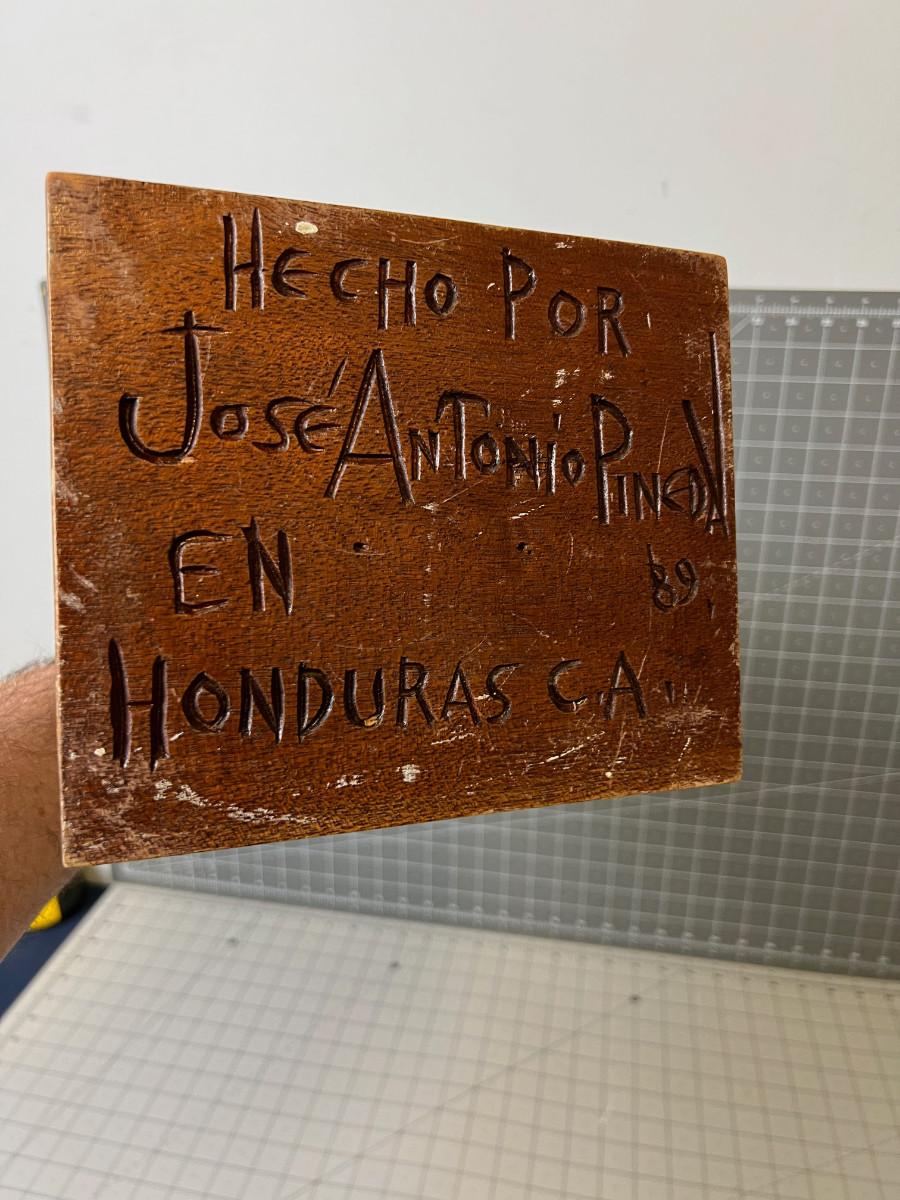 HECHO POR
JOSÉ ANTONIO PINEDA
EN '89.
HONDURAS C.A.